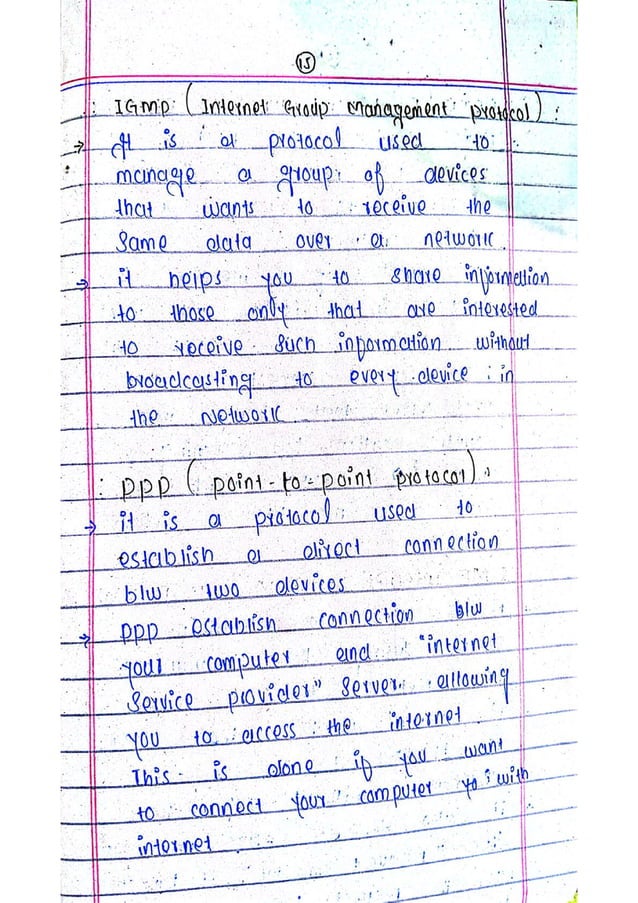 15
: IGMP (Internet Group Management protocol) :
→ It is a protocol used to
manage a group of devices
that wants to receive the
same data over a network.
→ it helps you to share information
to those only that are interested
to receive such information without
broadcasting to every device in
the Network
: PPP (point-to-point protocol) :
→ it is a protocol used to
establish a direct connection
b/w two devices
→ PPP establish connection b/w
your computer and "internet
service provider" server allowing
you to access the internet.
This is done if you want
to connect your computer with
internet.